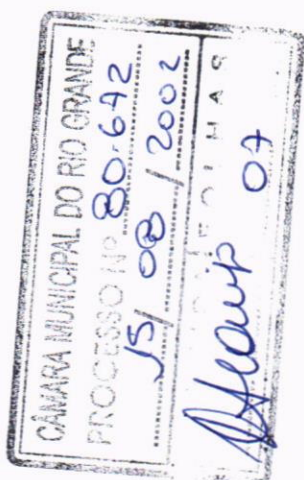 CÂMARA MUNICIPAL DO RIO GRANDE
PROCESSO Nº 80.642
15/08/2002
FOLHAS
07